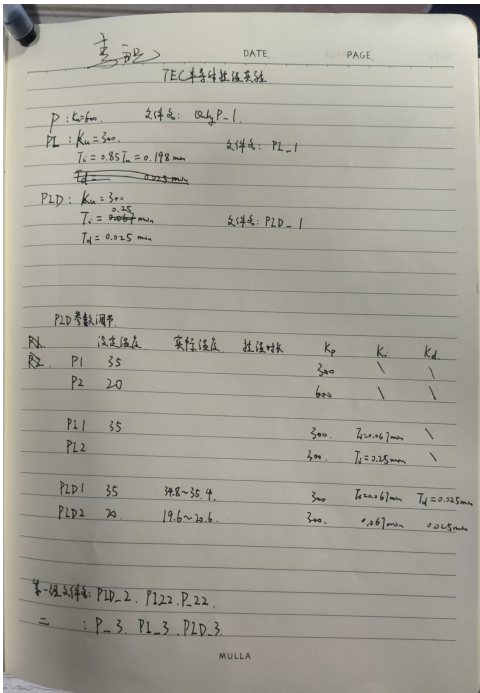 DATE. PAGE.
TEC半导体控温实验
P : Ku=600. 文件名: Only P_1
PI : Ku=300. 文件名: PI_1
Ti = 0.85Tu = 0.198 min
Td = 0.025 min
PID : Ku = 300
0.25
Ti = 0.067 min 文件名: PID_1
Td = 0.025 min
PID参数调节.
设定温度 实际温度 控温时长 Kp Ki Kd
P1 35 300 \ \
P2 20 600 \ \
PI1 35 300. Ti=0.067min \
PI2 300. Ti=0.25min \
PID1 35 34.8~35.4. 300 Ti=0.067min Td=0.025min
PID2 20. 19.6~20.6. 300. 0.067min 0.025min
第一组文件名: PID_2. PI22. P_22.
二 : P_3. PI_3. PID_3.
MULLA